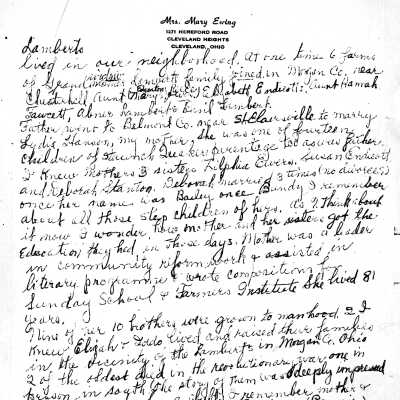 Mrs. Mary Ewing
1271 HEREFORD ROAD
CLEVELAND HEIGHTS
CLEVELAND, OHIO
Lamberts
lived in our neighborhood. At one time 6 farms
of Grandmother family joined in Morgan Co. near
Chesterhill Aunt Mary Elizabeth Endicott, Aunt Hannah
Fawcett, Abner Lambert & Emil Lambert.
Father went to Belmont Co. near St Clairsville to marry
Lydia Hanson, my mother, she was one of fourteen
children of staunch Quaker parentage too as was father.
I knew Mothers 3 sisters Zilphia Ewers, Susan Endicott
and Deborah Stanton. Deborah married 3 times no divorces
once her name was Bailey once Bundy I remember
about all those step children of hers. As I think about
it now I wonder, how mother and her sisters got the
Education they had in those days. Mother was a leader
in community reform work & assisted in
literary programs & wrote compositions for
Sunday School & Farmers Institute She lived 81
years.
Nine of her 10 brothers were grown to manhood I
knew Elijah & lived and raised their families
in the vicinity of the Lamberts in Morgan Co. Ohio
2 of the oldest died in the revolutionary war, one in
prison in south the story of them was deeply impressed
I remember mother &